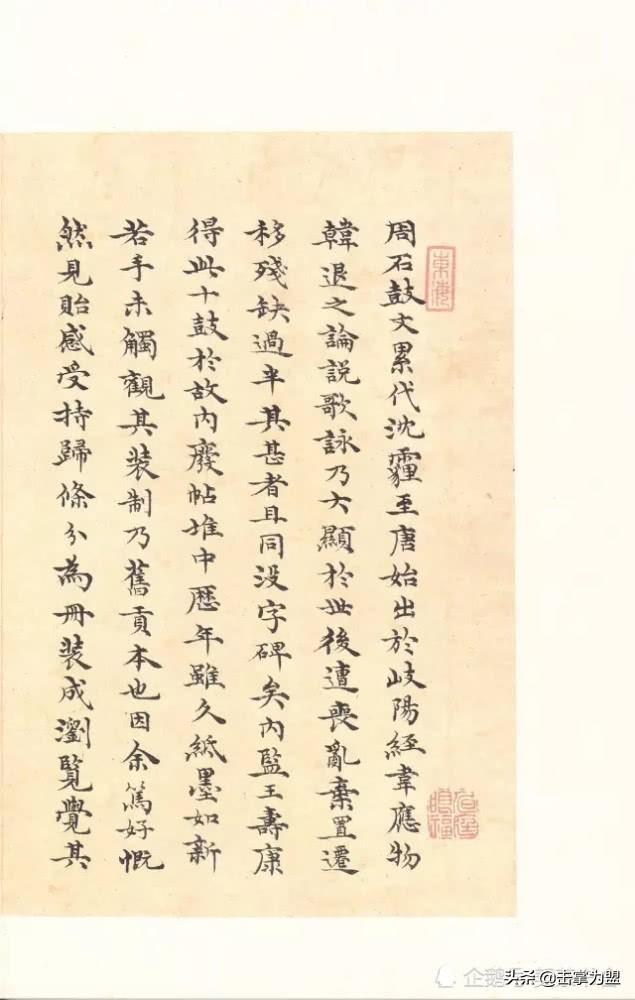 周石鼓文累代沈霾至唐始出於岐陽経韋應物
韓退之論説歌詠乃大顯於世後遭喪亂棄置遷
移殘缺過半其甚者且同没字碑矣内監王壽康
得此十鼓於故内廢帖堆中歴年雖久紙墨如新
若手未觸觀其装制乃舊貢本也因余篤好慨
然見貽感受持歸條分為冊装成瀏覽覺其
東海
头条 @击掌为盟